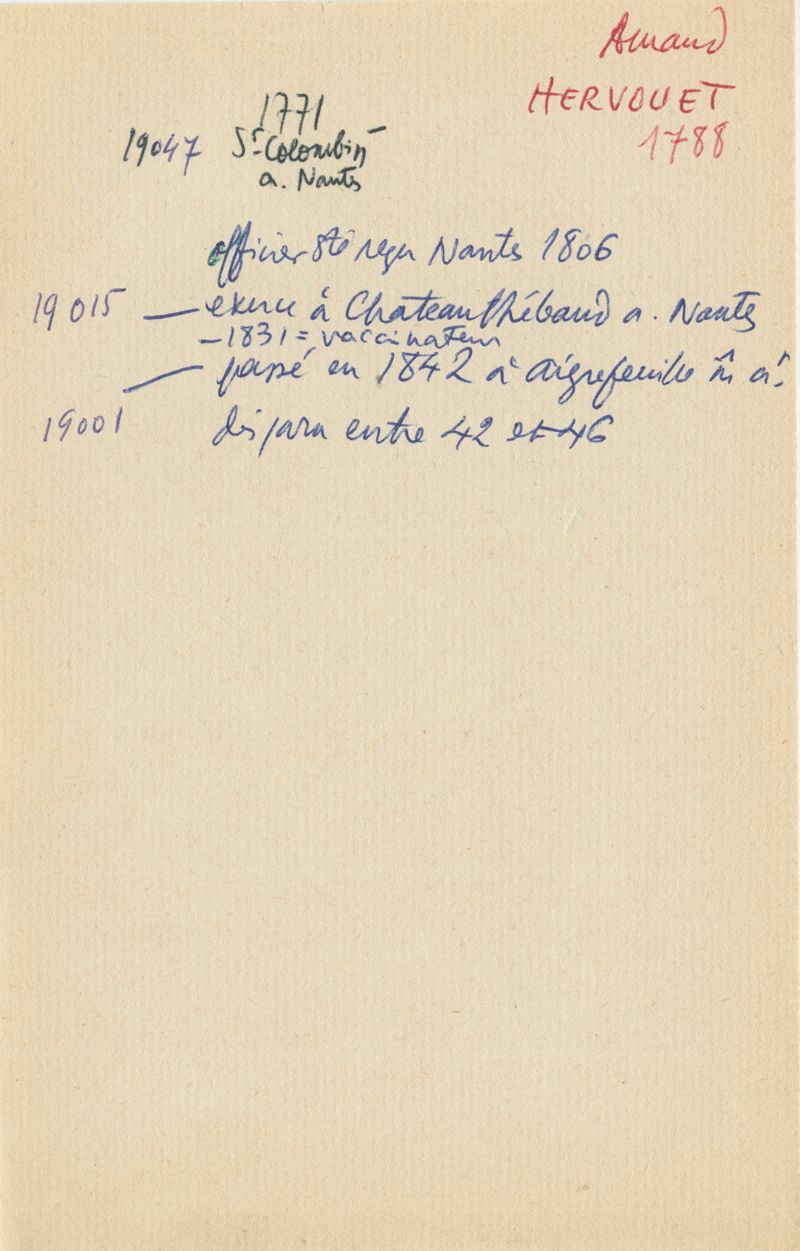 Amand
HERVOUET
1788
1771
19047 St-Colombin
a. Nantes
officier sté reçu Nantes 1806
19015 — exerce à Chateauthébaud a. Nantes
- 1831 = vaccinateur
— passé en 1842 à aigrefeuille m̂ a^t.
19001 disparu entre 42 et 46